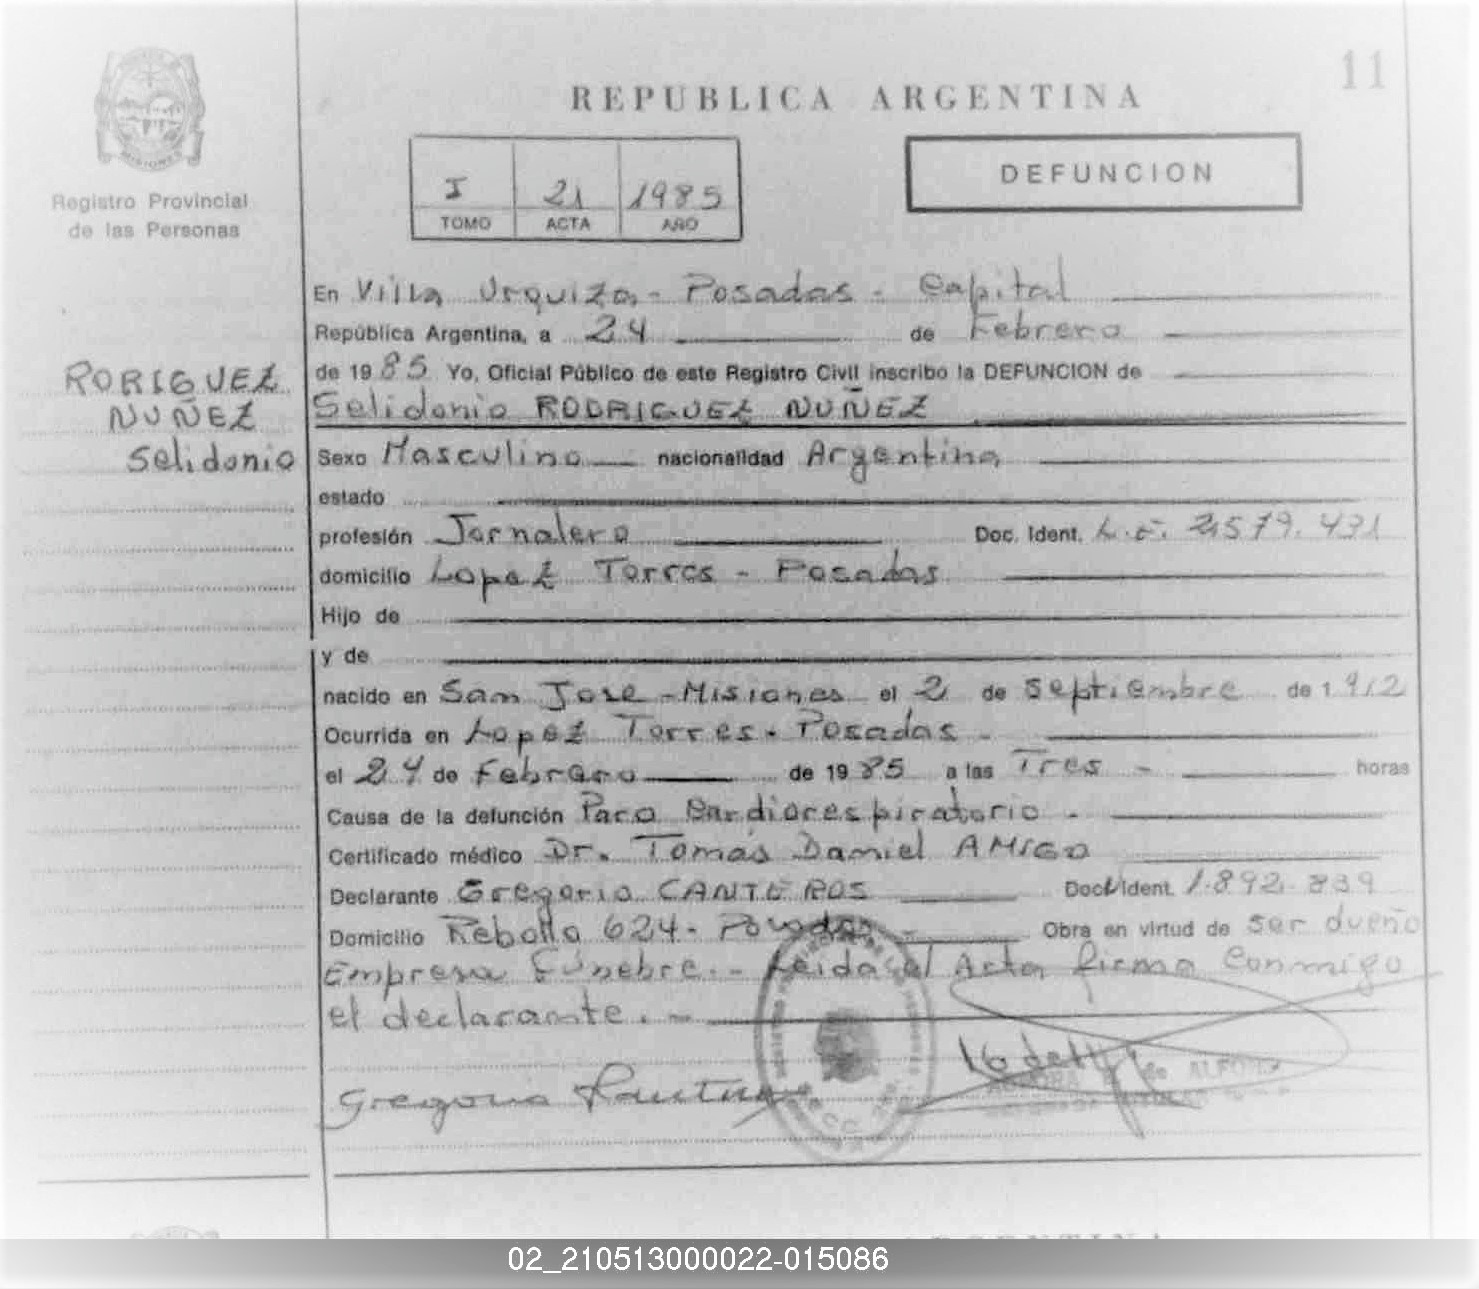 11
REPUBLICA ARGENTINA
DEFUNCION
I 21 1985
TOMO ACTA AÑO
MISIONES
Registro Provincial
de las Personas
RORIGUEZ
NUÑEZ
Selidonio
En Villa Urquiza - Posadas - Capital
República Argentina, a 24 de Febrero
de 1985 Yo, Oficial Público de este Registro Civil inscribo la DEFUNCION de
Selidonio RODRIGUEZ NUÑEZ
Sexo Masculino nacionalidad Argentina
estado
profesión Jornalero Doc. Ident. L.E. 2.579.431
domicilio Lopez Torres - Posadas
Hijo de
y de
nacido en San Jose - Misiones el 2 de Septiembre de 1912
Ocurrida en Lopez Torres - Posadas -
el 24 de Febrero de 1985 a las Tres - horas
Causa de la defunción Paro Cardiorespiratorio -
Certificado médico Dr. Tomás Daniel AMIGO
Declarante Gregorio CANTEROS Doc. Ident. 1.892.839
Domicilio Rebollo 624 - Posadas - Obra en virtud de ser dueño
Empresa Fúnebre. - Leida el Acta firma conmigo
el declarante. -
Gregorio
de ALFONZO
02_210513000022-015086